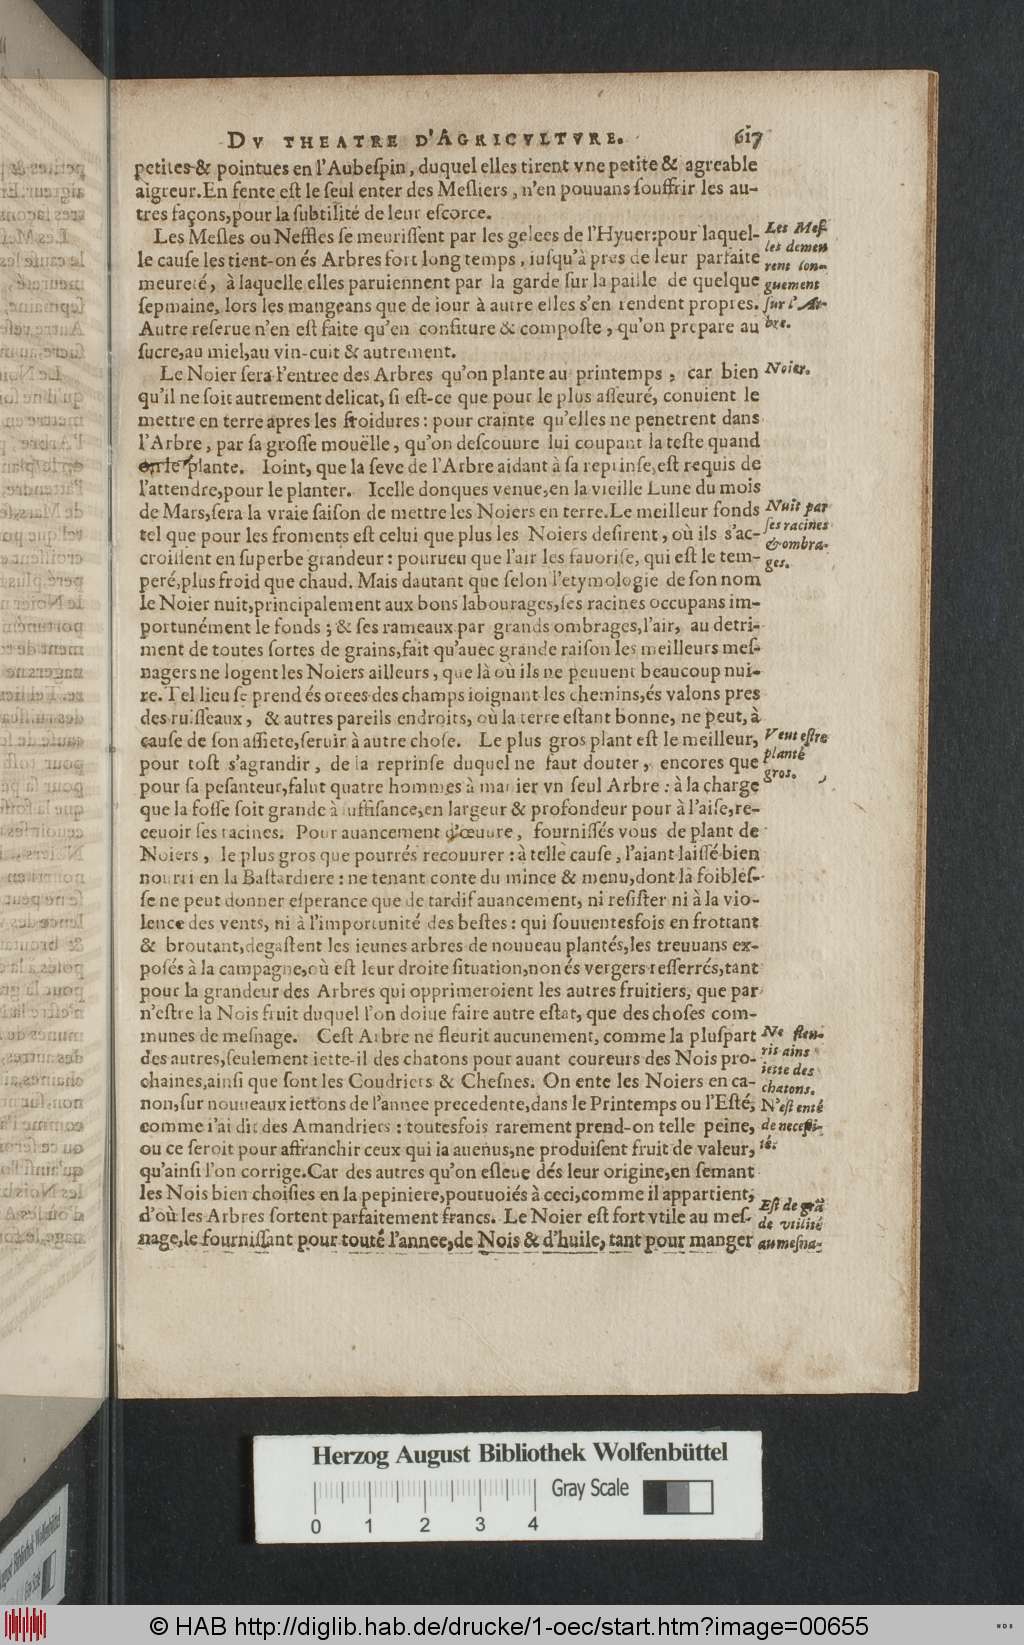 DV THEATRE D'AGRICVLTVRE. 617
petites & pointues en l'Aubeſpin, duquel elles tirent vne petite & agreable
aigreur. En fente eſt le ſeul enter des Meſliers, n'en pouuans ſouffrir les au-
tres façons, pour la ſubtilité de leur eſcorce.
Les Meſles ou Neffles ſe meuriſſent par les gelees de l'Hyuer: pour laquel-
le cauſe les tient-on és Arbres fort long temps, iuſqu'à pres de leur parfaite
meureté, à laquelle elles paruiennent par la garde ſur la paille de quelque
ſepmaine, lors les mangeans que de iour à autre elles s'en rendent propres.
Autre reſerue n'en eſt faite qu'en confiture & compoſte, qu'on prepare au
ſucre, au miel, au vin-cuit & autrement.
Les Meſ-
les demeu
rent lon-
guement
ſur l'Ar-
bre.
Le Noier ſera l'entree des Arbres qu'on plante au printemps, car bien
qu'il ne ſoit autrement delicat, ſi eſt-ce que pour le plus aſſeuré, conuient le
mettre en terre apres les froidures: pour crainte qu'elles ne penetrent dans
l'Arbre, par ſa groſſe mouëlle, qu'on deſcouure lui coupant la teſte quand
on le plante. Ioint, que la ſeve de l'Arbre aidant à ſa reprinſe, eſt requis de
l'attendre, pour le planter. Icelle donques venue, en la vieille Lune du mois
de Mars, ſera la vraie ſaiſon de mettre les Noiers en terre. Le meilleur fonds
tel que pour les froments eſt celui que plus les Noiers deſirent, où ils s'ac-
croiſſent en ſuperbe grandeur: pourueu que l'air les fauoriſe, qui eſt le tem-
peré, plus froid que chaud. Mais dautant que ſelon l'etymologie de ſon nom
le Noier nuit, principalement aux bons labourages, ſes racines occupans im-
portunément le fonds; & ſes rameaux par grands ombrages, l'air, au detri-
ment de toutes ſortes de grains, fait qu'auec grande raiſon les meilleurs meſ-
nagers ne logent les Noiers ailleurs, que là où ils ne peuuent beaucoup nui-
re. Tel lieu ſe prend és orees des champs ioignant les chemins, és valons pres
des ruiſſeaux, & autres pareils endroits, où la terre eſtant bonne, ne peut, à
cauſe de ſon aſſiete, ſeruir à autre choſe. Le plus gros plant eſt le meilleur,
pour toſt s'agrandir, de la reprinſe duquel ne faut douter, encores que
pour ſa peſanteur, falut quatre hommes à manier vn ſeul Arbre: à la charge
que la foſſe ſoit grande à ſuffiſance, en largeur & profondeur pour à l'aiſe, re-
ceuoir ſes racines. Pour auancement d'œuure, fourniſſés vous de plant de
Noiers, le plus gros que pourrés recouurer: à telle cauſe, l'aiant laiſſé bien
nourri en la Baſtardiere: ne tenant conte du mince & menu, dont la foibleſ-
ſe ne peut donner eſperance que de tardif auancement, ni reſiſter ni à la vio-
lence des vents, ni à l'importunité des beſtes: qui ſouuentesfois en frottant
& broutant, degaſtent les ieunes arbres de nouueau plantés, les treuuans ex-
poſés à la campagne, où eſt leur droite ſituation, non és vergers reſſerrés, tant
pour la grandeur des Arbres qui opprimeroient les autres fruitiers, que par
n'eſtre la Nois fruit duquel l'on doiue faire autre eſtat, que des choſes com-
munes de meſnage. Ceſt Arbre ne fleurit aucunement, comme la pluſpart
des autres, ſeulement iette-il des chatons pour auant coureurs des Nois pro-
chaines, ainſi que ſont les Coudriers & Cheſnes. On ente les Noiers en ca-
non, ſur nouueaux iettons de l'annee precedente, dans le Printemps ou l'Eſté,
comme i'ai dit des Amandriers: toutesfois rarement prend-on telle peine,
ou ce ſeroit pour affranchir ceux qui ia auenus, ne produiſent fruit de valeur,
qu'ainſi l'on corrige. Car des autres qu'on eſleue dés leur origine, en ſemant
les Nois bien choiſies en la pepiniere, pouruoiés à ceci, comme il appartient,
d'où les Arbres ſortent parfaitement francs. Le Noier eſt fort vtile au meſ-
nage, le fourniſſant pour toute l'annee, de Nois & d'huile, tant pour manger
Noier.
Nuit par
ſes racines
& ombra-
ges.
Veut eſtre
planté
gros.
Ne fleu-
rit ains
iette des
chatons.
N'eſt enté
de neceſſi-
té.
Eſt de grã
de vtilité
au meſna-
Herzog August Bibliothek Wolfenbüttel
Gray Scale
0 1 2 3 4
© HAB http://diglib.hab.de/drucke/1-oec/start.htm?image=00655